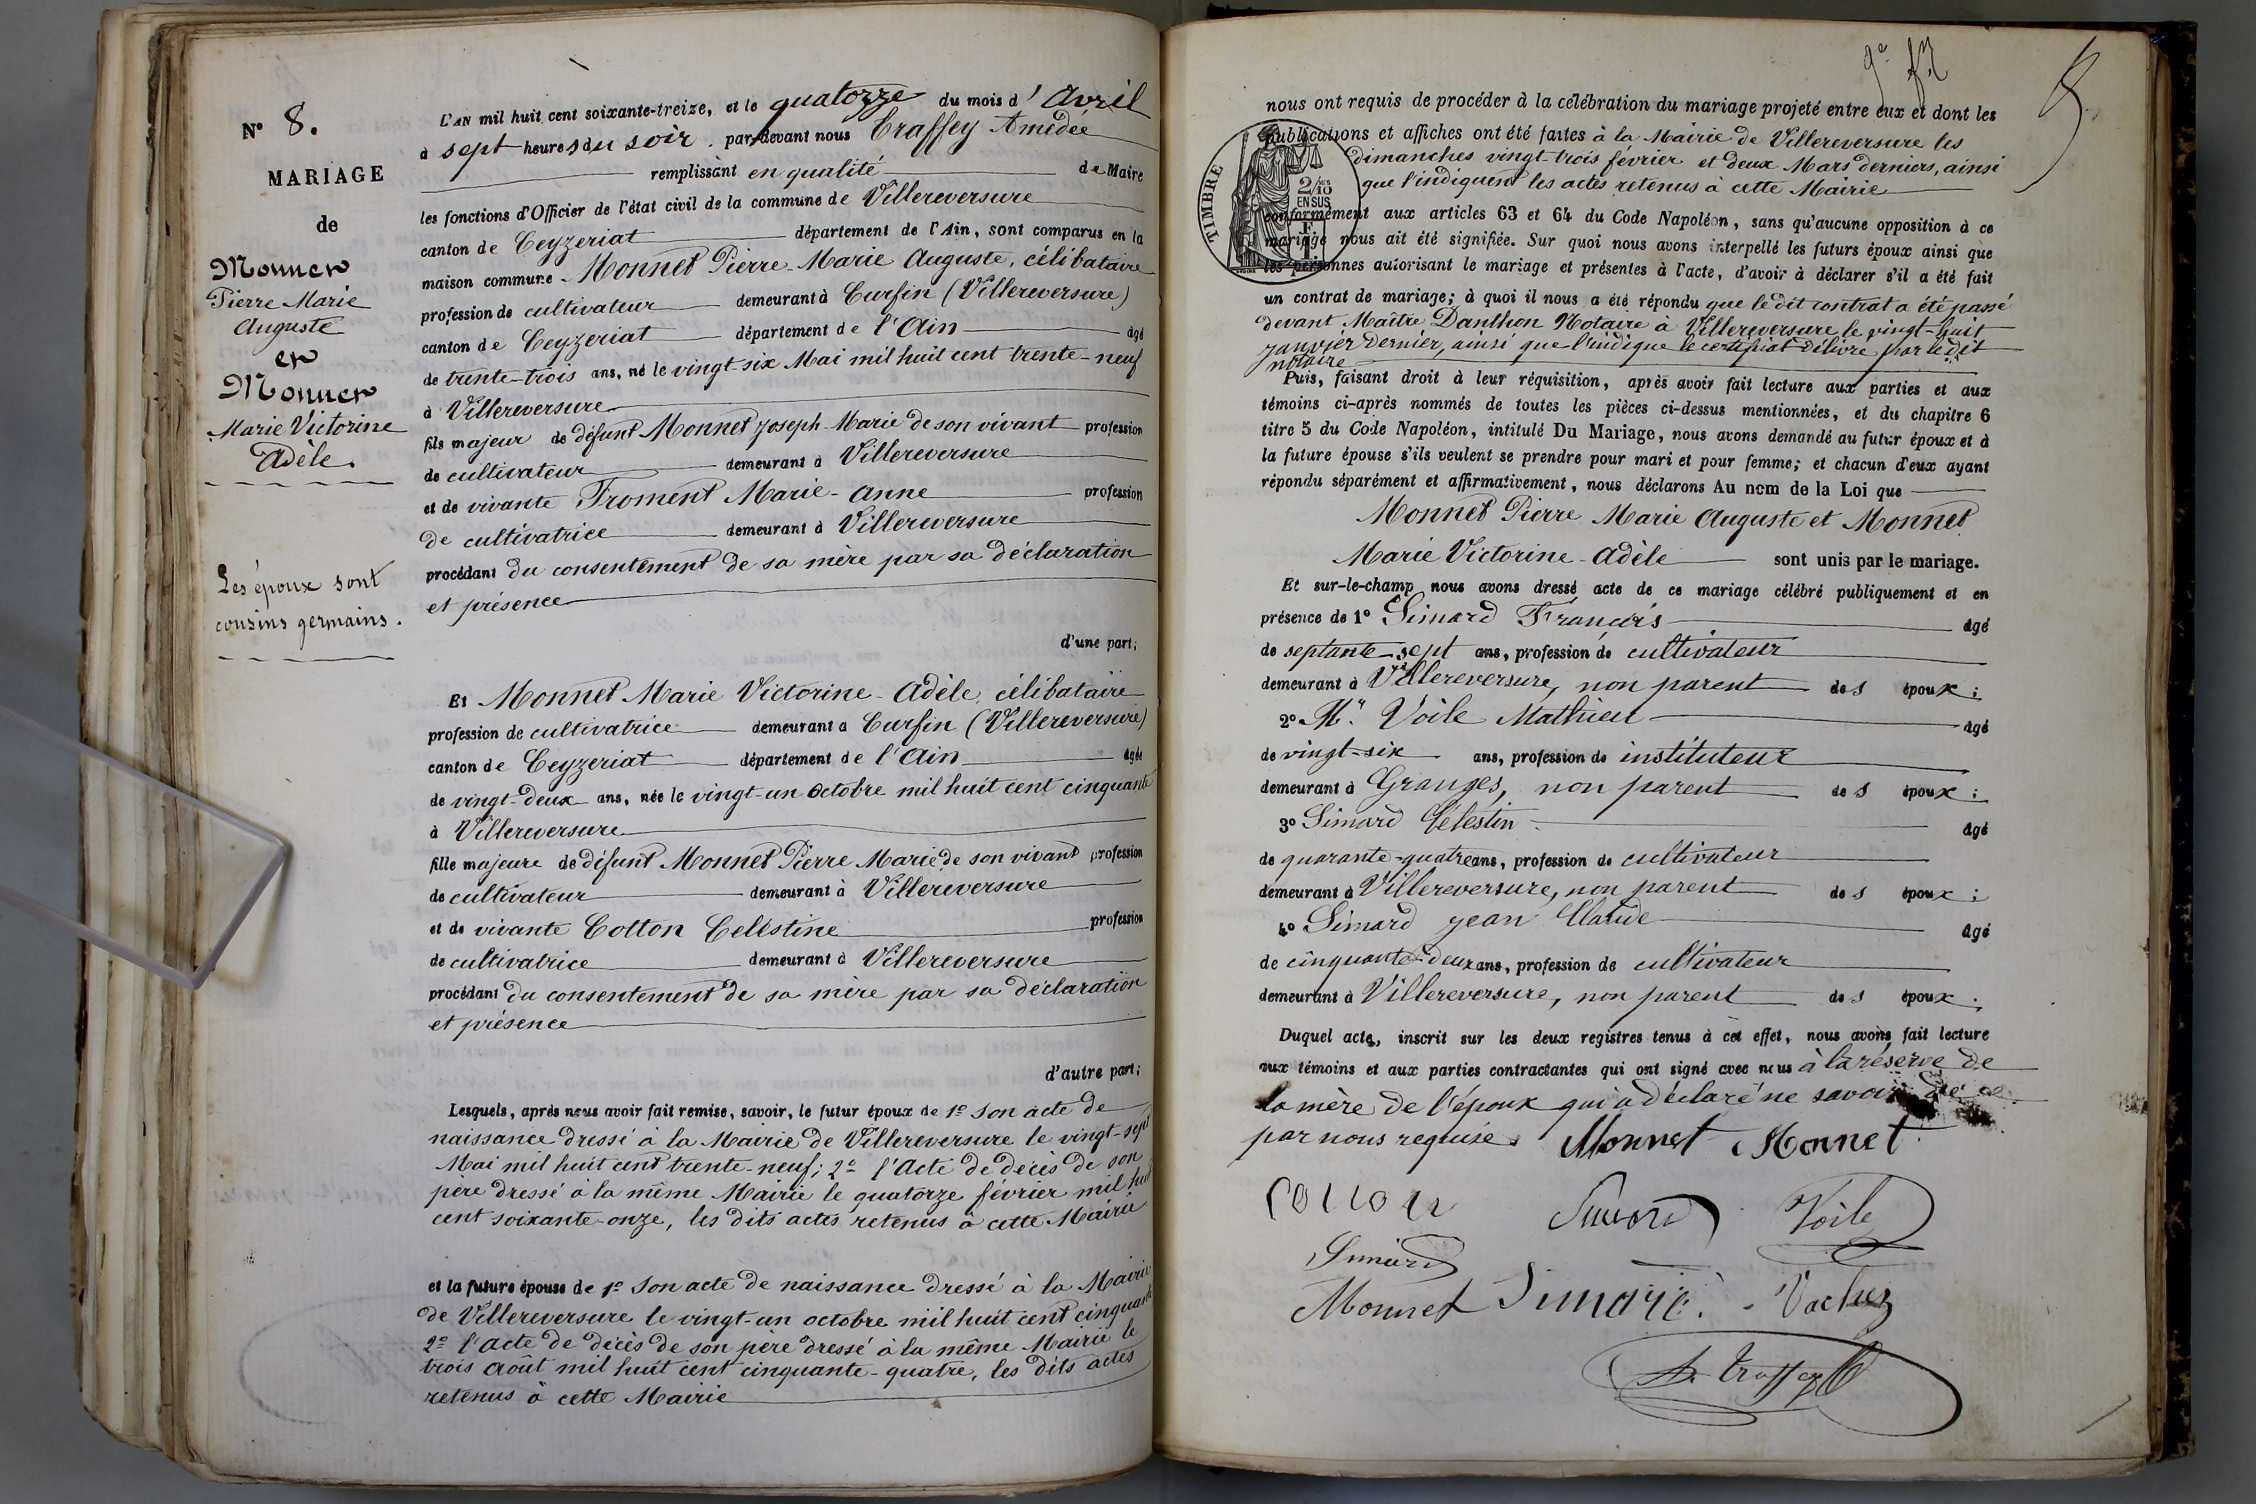 N° 8.
MARIAGE
de
Monnet
Pierre Marie
Auguste
et
Monnet
Marie Victorine
Adèle.
Les époux sont
cousins germains.
L'AN mil huit cent soixante-treize, et le quatorze du mois d'Avril
à sept heures du soir. par-devant nous Traffey Amédée
remplissant en qualité de Maire
les fonctions d'Officier de l'état civil de la commune de Villereversure
canton de Ceyzeriat département de l'Ain, sont comparus en la
maison commune Monnet Pierre-Marie Auguste, célibataire
profession de cultivateur demeurant à Curfin (Villereversure)
canton de Ceyzeriat département de l'Ain âgé
de trente-trois ans, né le vingt-six Mai mil huit cent trente-neuf
à Villereversure
fils majeur de défunt Monnet Joseph-Marie de son vivant profession
de cultivateur demeurant à Villereversure
et de vivante Froment Marie-Anne profession
de cultivatrice demeurant à Villereversure
procédant du consentement de sa mère par sa déclaration
et présence
d'une part;
Et Monnet Marie Victorine-Adèle, célibataire
profession de cultivatrice demeurant à Curfin (Villereversure)
canton de Ceyzeriat département de l'Ain âgée
de vingt-deux ans, née le vingt-un Octobre mil huit cent cinquante
à Villereversure
fille majeure de défunt Monnet Pierre Marie de son vivant profession
de cultivateur demeurant à Villereversure
et de vivante Cotton Celéstine profession
de cultivatrice demeurant à Villereversure
procédant du consentement de sa mère par sa déclaration
et présence
d'autre part;
Lesquels, après nous avoir fait remise, savoir, le futur époux de 1° Son acte de
naissance dressé à la Mairie de Villereversure le vingt-sept
Mai mil huit cent trente-neuf; 2° l'Acte de décès de son
père dressé à la même Mairie le quatorze février mil huit
cent soixante-onze, les dits actes retenus à cette Mairie
et la future épouse de 1° Son acte de naissance dressé à la Mairie
de Villereversure le vingt-un octobre mil huit cent cinquante
2° l'acte de décès de son père dressé à la même Mairie le
trois Août mil huit cent cinquante-quatre, les dits actes
retenus à cette Mairie
TIMBRE
2/10
EN SUS
nous ont requis de procéder à la célébration du mariage projeté entre eux et dont les
publications et affiches ont été faites à la Mairie de Villereversure les
dimanches vingt-trois février et deux Mars derniers, ainsi
que l'indiquent les actes retenus à cette Mairie
conformément aux articles 63 et 64 du Code Napoléon, sans qu'aucune opposition à ce
mariage nous ait été signifiée. Sur quoi nous avons interpellé les futurs époux ainsi que
les personnes autorisant le mariage et présentes à l'acte, d'avoir à déclarer s'il a été fait
un contrat de mariage; à quoi il nous a été répondu que le dit contrat a été passé
devant Maître Danthon Notaire à Villereversure le vingt-huit
janvier dernier, ainsi que l'indique le certificat délivré par le dit
notaire
Puis, faisant droit à leur réquisition, après avoir fait lecture aux parties et aux
témoins ci-après nommés de toutes les pièces ci-dessus mentionnées, et du chapitre 6
titre 5 du Code Napoléon, intitulé Du Mariage, nous avons demandé au futur époux et à
la future épouse s'ils veulent se prendre pour mari et pour femme; et chacun d'eux ayant
répondu séparément et affirmativement, nous déclarons Au nom de la Loi que
Monnet Pierre Marie Auguste et Monnet
Marie Victorine-Adèle sont unis par le mariage.
Et sur-le-champ nous avons dressé acte de ce mariage célébré publiquement et en
présence de 1° Simard François âgé
de septante-sept ans, profession de cultivateur
demeurant à Villereversure, non parent des époux;
2° Mr. Voile Mathieu âgé
de vingt-six ans, profession de instituteur
demeurant à Granges, non parent des époux;
3° Simard Célestin âgé
de quarante-quatre ans, profession de cultivateur
demeurant à Villereversure, non parent des époux;
4° Simard Jean Claude âgé
de cinquante-deux ans, profession de cultivateur
demeurant à Villereversure, non parent des époux.
Duquel acte, inscrit sur les deux registres tenus à cet effet, nous avons fait lecture
aux témoins et aux parties contractantes qui ont signé avec nous à la réserve de
la mère de l'époux qui a déclaré ne savoir de ce
par nous requise. Monnet Monnet
Cotton Simard Voile
Simard
Monnet Simard Vachez
A. Traffey